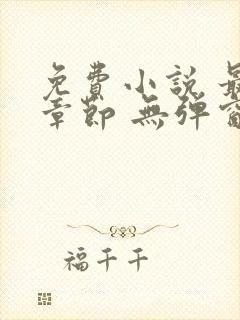 免費小說 最
章節 無彈窗
福千千